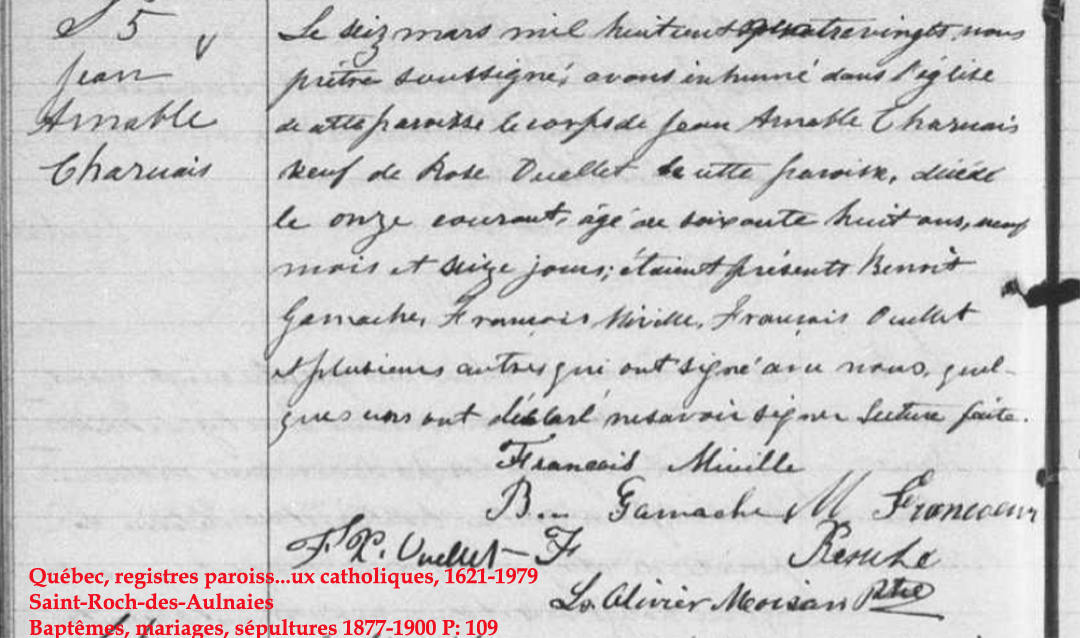 S 5
Jean
Amable
Charuais
Le seiz mars mil huit cent quatrevingts, nous
prêtre soussigné, avons inhumé dans l'église
de cette paroisse le corps de Jean Amable Charuais
veuf de Rose Ouellet de cette paroisse, décédé
le onze courant, âgé de soixante huit ans, neuf
mois et seize jours; étaient présents Benoit
Gamache, François Miville, François Ouellet
et plusieurs autres qui ont signé avec nous, quel-
ques uns ont déclaré ne savoir signer Lecture faite.
François Miville
B. Gamache M Francoeur
F. X. Ouellet F
Ls Olivier Moisan Ptre
Québec, registres paroiss...ux catholiques, 1621-1979
Saint-Roch-des-Aulnaies
Baptêmes, mariages, sépultures 1877-1900 P: 109